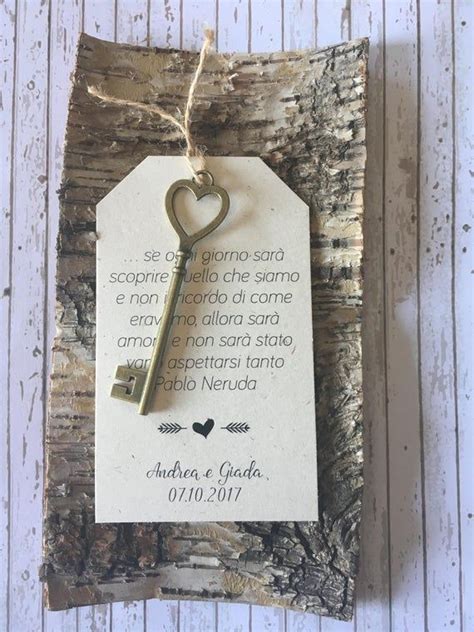 ... se ogni giorno sarà
scoprire quello che siamo
e non il ricordo di come
eravamo, allora sarà
amore e non sarà stato
vano aspettarsi tanto
Pablo Neruda
Andrea e Giada
07.10.2017